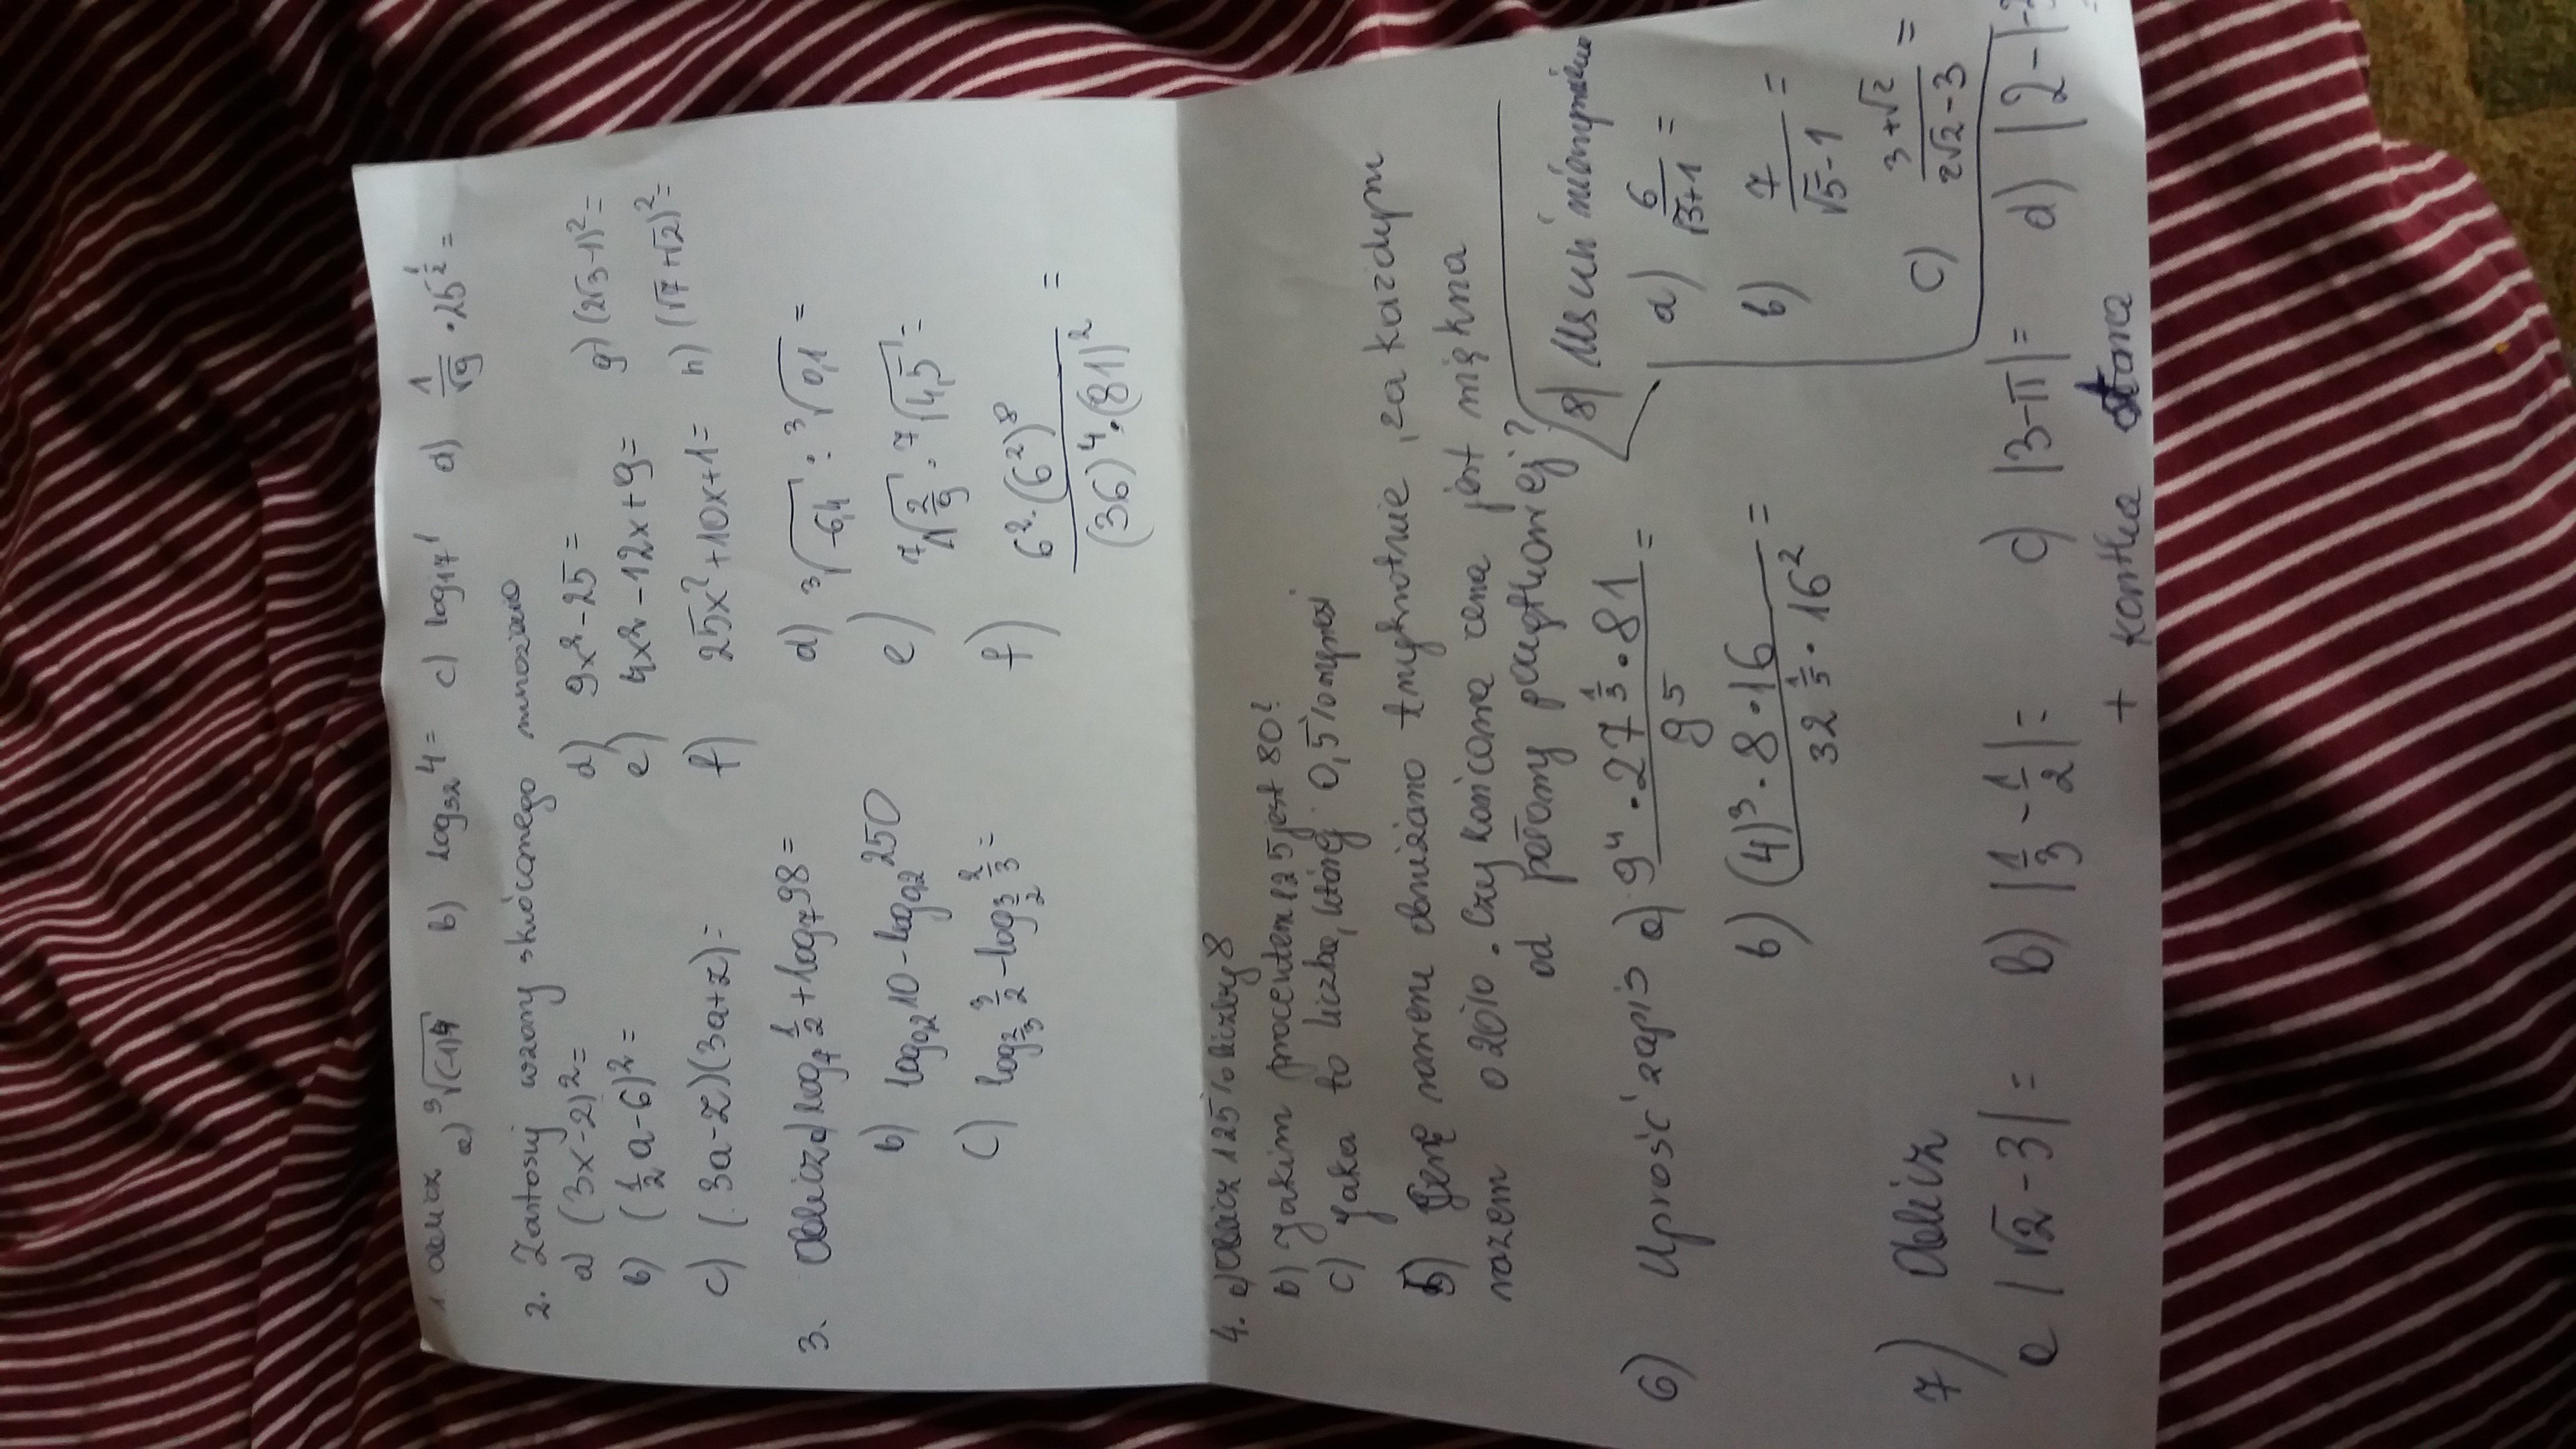 1 Oblicz
a) ³√(-1)⁴ b) log₃₂ 4 = c) log₁₇ 1 d) 1/√9 · 25^½ =
2. Zastosuj wzory skróconego mnożenia
a) (3x-2)² = d) 9x² - 25 = g) (2√3-1)² =
b) (½a-6)² = e) 4x² - 12x + 9 = h) (√7+√2)² =
c) (3a-z)(3a+z) = f) 25x² + 10x + 1 =
3. Oblicz a) log₇ ½ + log₇ 98 = d) ³√-6,4 : ³√0,1 =
b) log₂ 10 - log₂ 250 e) ⁷√2/9 · ⁷√4,5 =
c) log_⅔ 3/2 - log_3/2 ⅔ = f) 6²·(6²)⁸ / (36)⁴·(81)² =
4. a) Oblicz 125% liczby 8
b) Jakim procentem 125 jest 80?
c) Jaka to liczba, której 0,5% wynosi
5) Cenę obniżano trzykrotnie, za każdym
razem o 20%. Czy końcowa cena jest większa
od połowy początkowej?
6) Uprość zapis a) 9⁴ · 27^⅓ · 81 / 9⁵ =
b) (4)³ · 8 · 16 / 32^⅕ · 16² =
8) Usuń
a) 6/√3+1 =
b) 7/√5-1 =
c) 3+√2 / 2√2-3 =
7) Oblicz
a |√2 - 3| = b) |⅓ - ½| = c) |3-π| = d) |2-|-
+ kartka stara